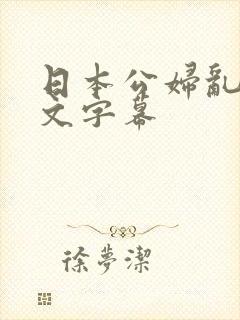 日本公婦亂
文字幕
徐夢潔